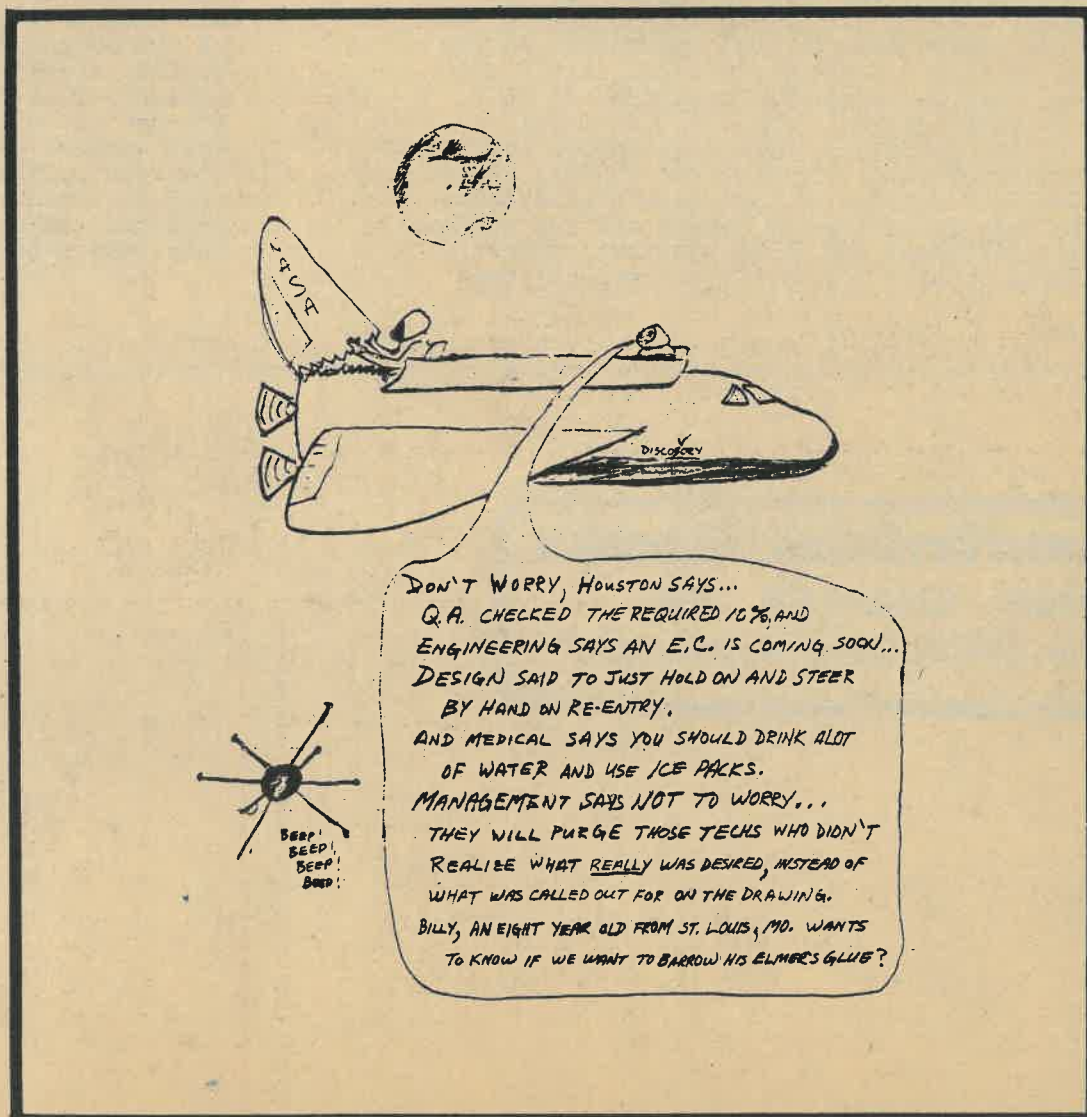 NASA
DISCOVERY
DON'T WORRY, HOUSTON SAYS...
Q.A. CHECKED THE REQUIRED 10%, AND
ENGINEERING SAYS AN E.C. IS COMING SOON...
DESIGN SAID TO JUST HOLD ON AND STEER
BY HAND ON RE-ENTRY.
AND MEDICAL SAYS YOU SHOULD DRINK ALOT
OF WATER AND USE ICE PACKS.
MANAGEMENT SAYS NOT TO WORRY...
THEY WILL PURGE THOSE TECHS WHO DIDN'T
REALIZE WHAT REALLY WAS DESIRED, INSTEAD OF
WHAT WAS CALLED OUT FOR ON THE DRAWING.
BILLY, AN EIGHT YEAR OLD FROM ST. LOUIS, MO. WANTS
TO KNOW IF WE WANT TO BARROW HIS ELMER'S GLUE?
BEEP!
BEEP!
BEEP!
BEEP!